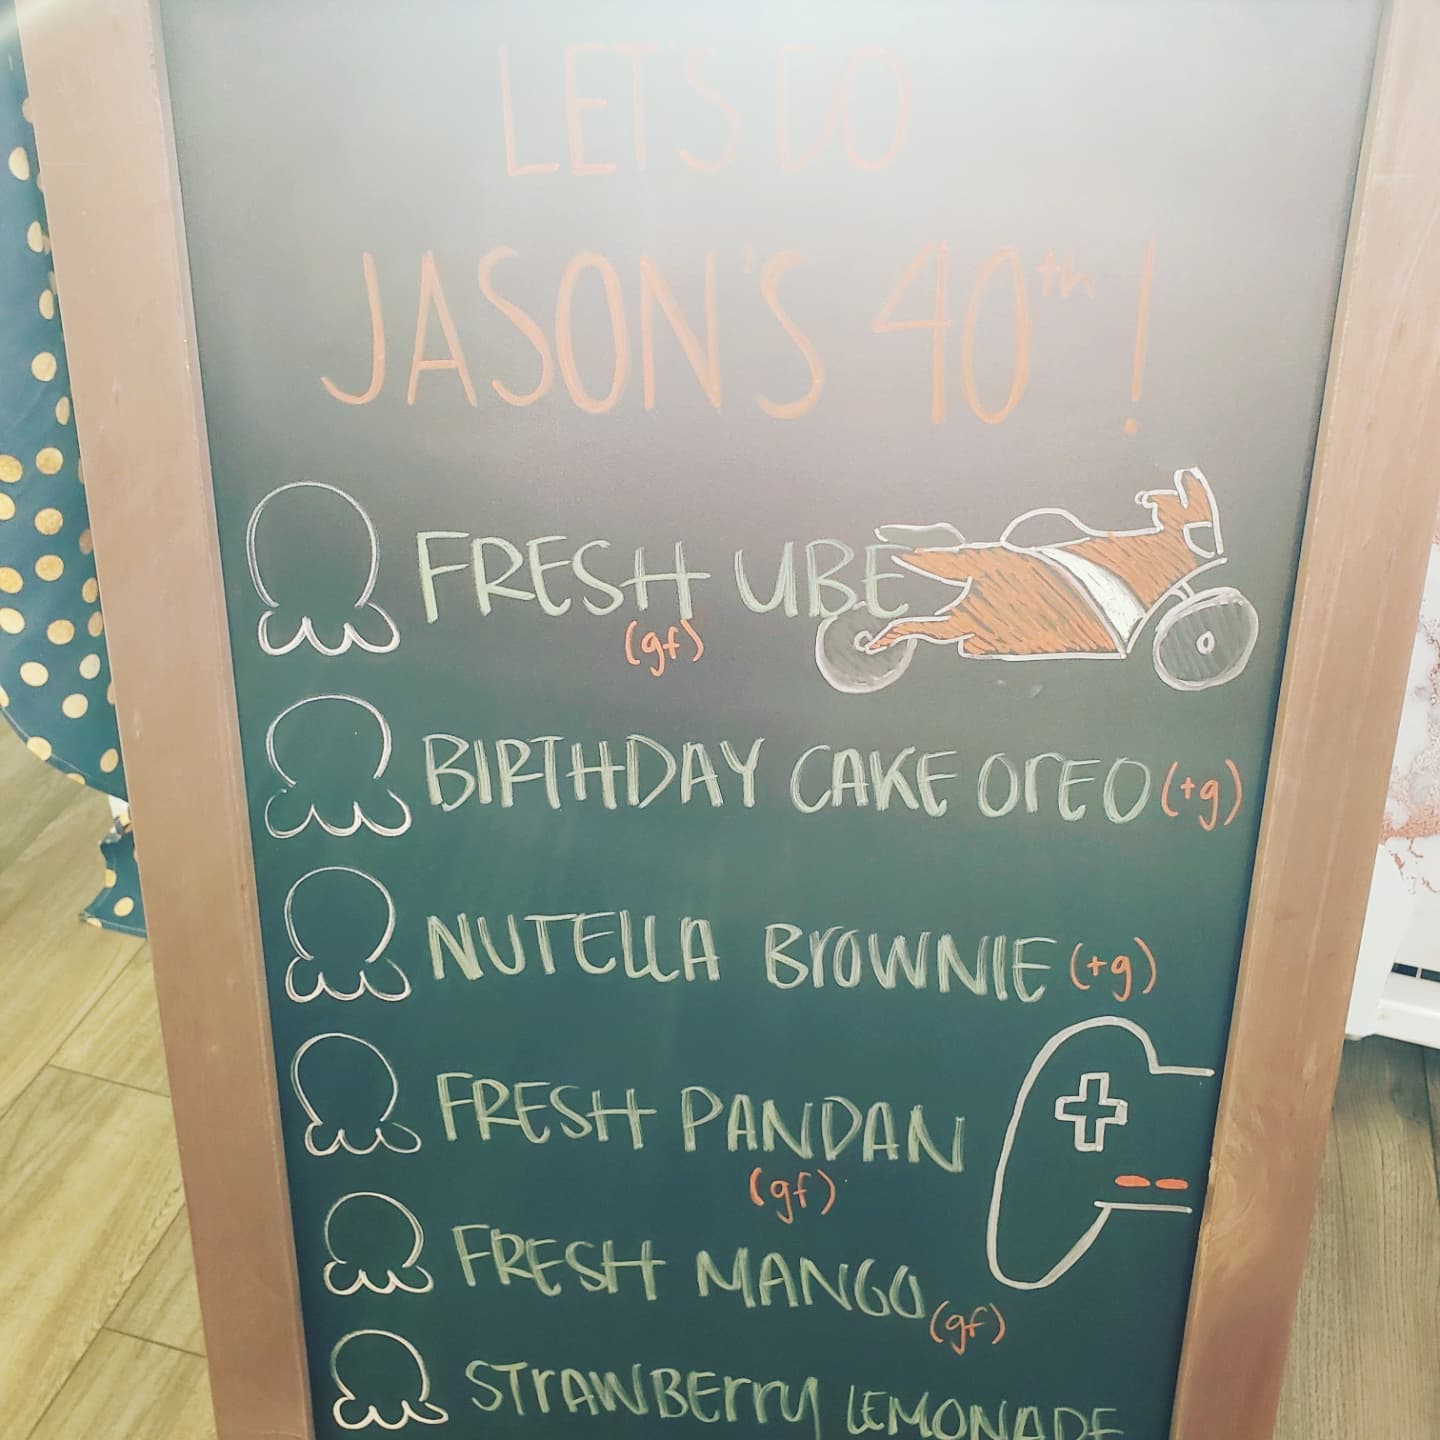 LET'S DO
JASON'S 40th!
FRESH UBE
(gf)
BIRTHDAY CAKE OreO (+g)
NUTELLA BrOWNIE (+g)
FRESH PANDAN
(gf)
FRESH MANGO
(gf)
STrAWBErry LEMONADE